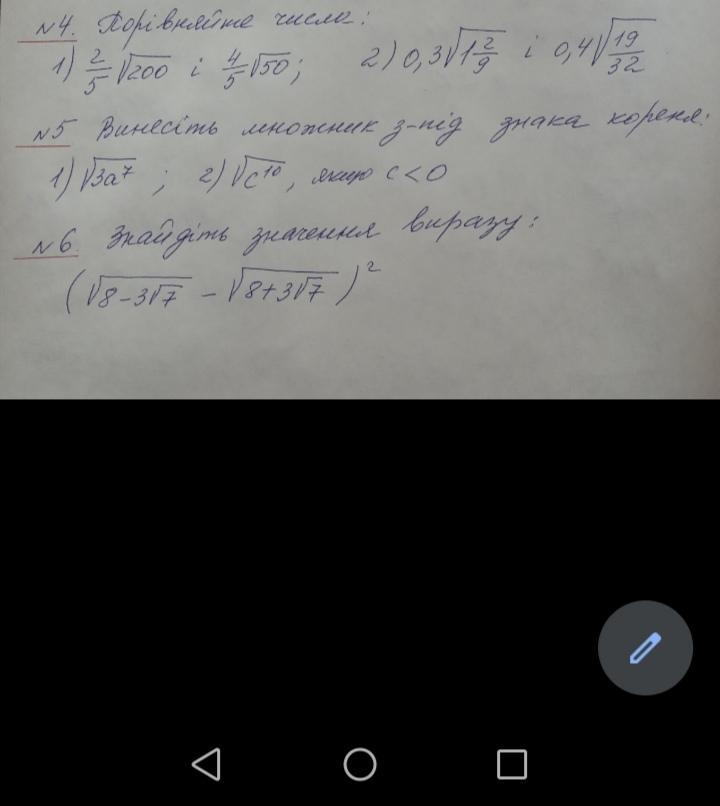 №4. Порівняйте числа:
1) 2/5 √200 і 4/5 √50; 2) 0,3√(1 2/9) і 0,4√(19/32)
№5 Винесіть множник з-під знака кореня:
1) √(3a⁷) ; 2) √(c¹⁰), якщо c < 0
№6. Знайдіть значення виразу:
(√(8-3√7) - √(8+3√7))²